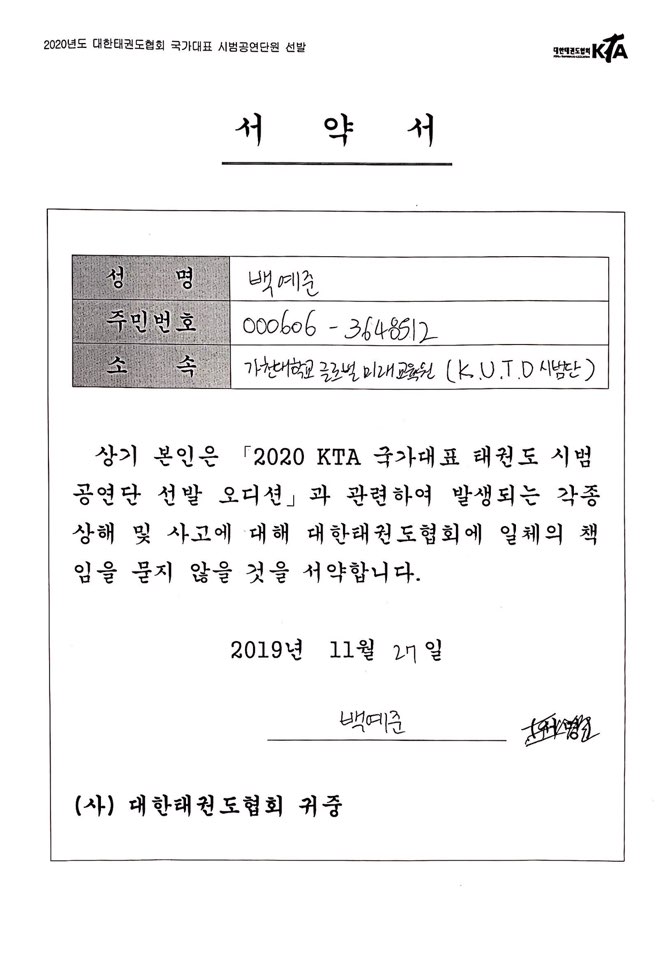 2020년도 대한태권도협회 국가대표 시범공연단원 선발
대한태권도협회 KTA
서 약 서
성 명 백예준
주민번호 000606 - 3648512
소 속 가천대학교 글로벌미래교육원 (K.U.T.D 시범단)
상기 본인은 「2020 KTA 국가대표 태권도 시범
공연단 선발 오디션」과 관련하여 발생되는 각종
상해 및 사고에 대해 대한태권도협회에 일체의 책
임을 묻지 않을 것을 서약합니다.
2019년 11월 27일
백예준
(사) 대한태권도협회 귀중